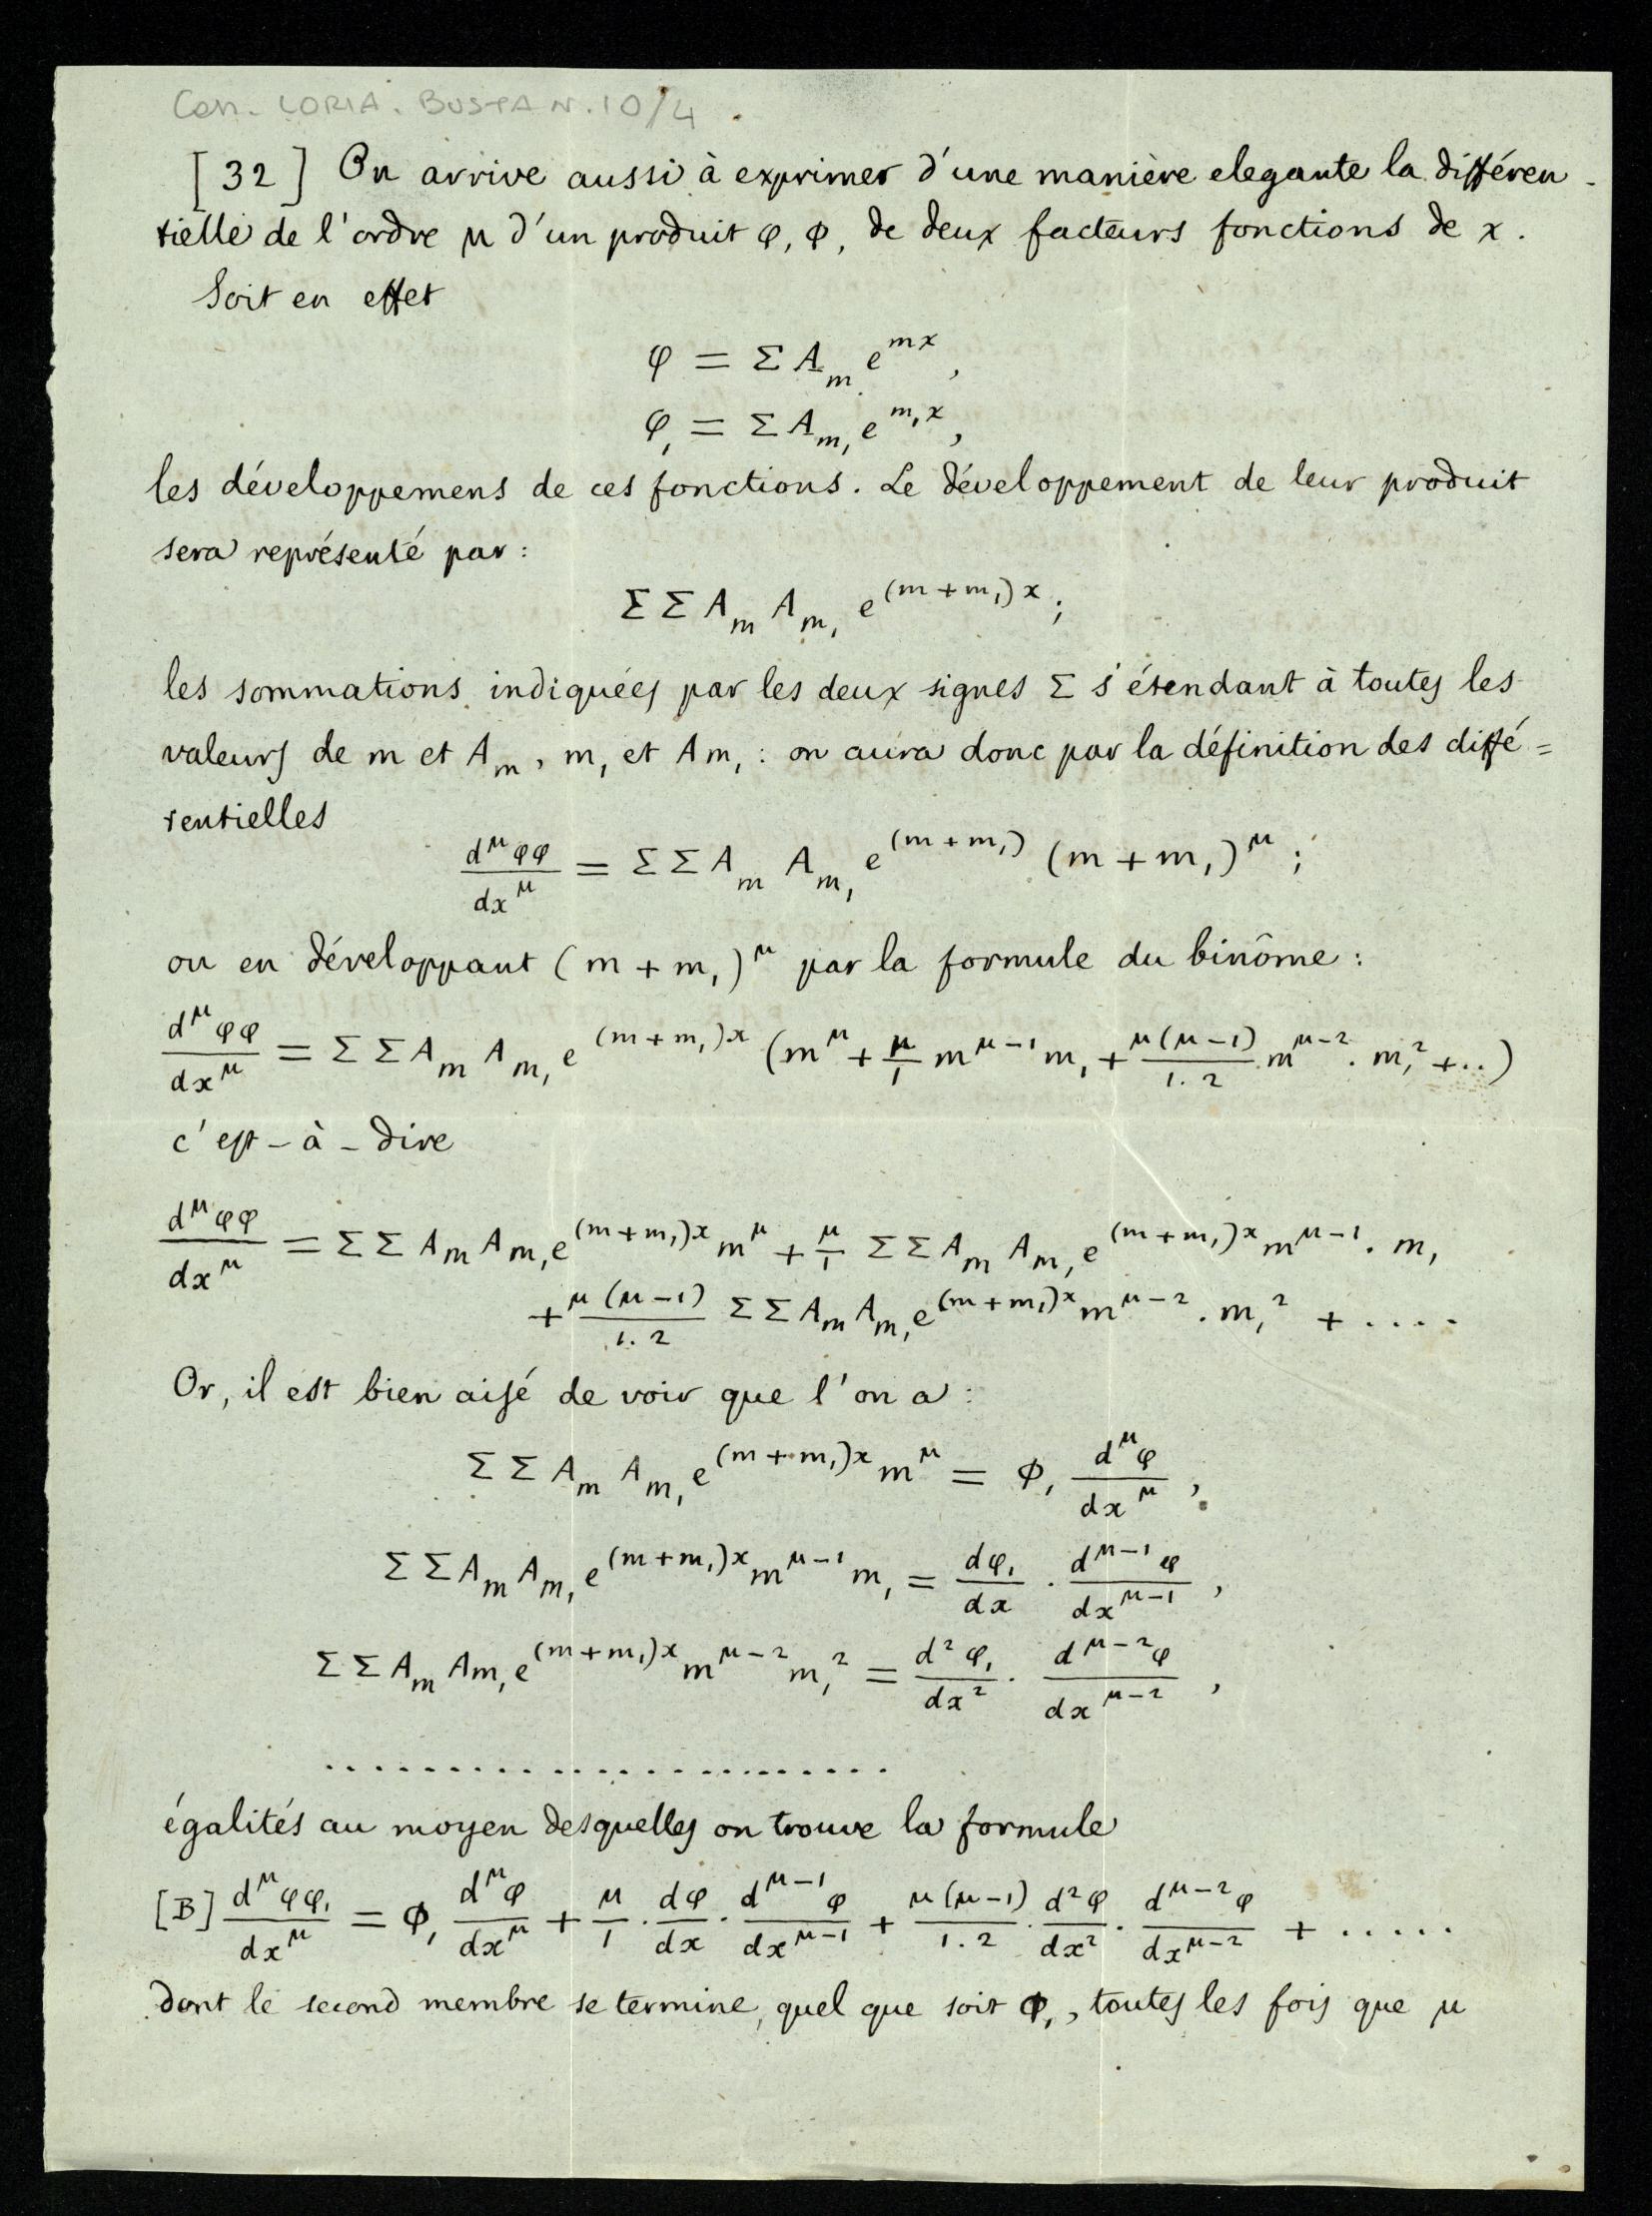 Con. LORIA. BUSTA N. 10/4
[32] On arrive aussi à exprimer d'une manière elegante la différen-
tielle de l'ordre μ d'un produit φ, φ, de deux facteurs fonctions de x.
Soit en effet
φ = Σ A_m e^{mx},
φ_, = Σ A_{m_,} e^{m_,x},
les développemens de ces fonctions. Le développement de leur produit
sera représenté par:
Σ Σ A_m A_{m_,} e^{(m+m_,)x};
les sommations indiquées par les deux signes Σ s'étendant à toutes les
valeurs de m et A_m, m_, et Am_,: on aura donc par la définition des diffé=
rentielles
\frac{d^μ φφ}{dx^μ} = Σ Σ A_m A_{m_,} e^{(m+m_,)} (m+m_,)^μ;
ou en développant (m+m_,)^μ par la formule du binôme:
\frac{d^μ φφ}{dx^μ} = Σ Σ A_m A_{m_,} e^{(m+m_,)x} (m^μ + \frac{μ}{1} m^{μ-1} m_, + \frac{μ(μ-1)}{1.2} m^{μ-2} . m_,^2 + ..)
c'est-à-dire
\frac{d^μ φφ}{dx^μ} = Σ Σ A_m A_{m_,} e^{(m+m_,)x} m^μ + \frac{μ}{1} Σ Σ A_m A_{m_,} e^{(m+m_,)x} m^{μ-1} . m_,
+ \frac{μ(μ-1)}{1.2} Σ Σ A_m A_{m_,} e^{(m+m_,)x} m^{μ-2} . m_,^2 + ....
Or, il est bien aisé de voir que l'on a:
Σ Σ A_m A_{m_,} e^{(m+m_,)x} m^μ = φ_, \frac{d^μ φ}{dx^μ},
Σ Σ A_m A_{m_,} e^{(m+m_,)x} m^{μ-1} m_, = \frac{dφ_,}{dx} . \frac{d^{μ-1} φ}{dx^{μ-1}},
Σ Σ A_m A_{m_,} e^{(m+m_,)x} m^{μ-2} m_,^2 = \frac{d^2 φ_,}{dx^2} . \frac{d^{μ-2} φ}{dx^{μ-2}},
........................
égalités au moyen desquelles on trouve la formule
[B] \frac{d^μ φφ_,}{dx^μ} = φ_, \frac{d^μ φ}{dx^μ} + \frac{μ}{1} . \frac{dφ}{dx} . \frac{d^{μ-1} φ}{dx^{μ-1}} + \frac{μ(μ-1)}{1.2} . \frac{d^2 φ}{dx^2} . \frac{d^{μ-2} φ}{dx^{μ-2}} + .....
dont le second membre se termine, quel que soit φ_,, toutes les fois que μ